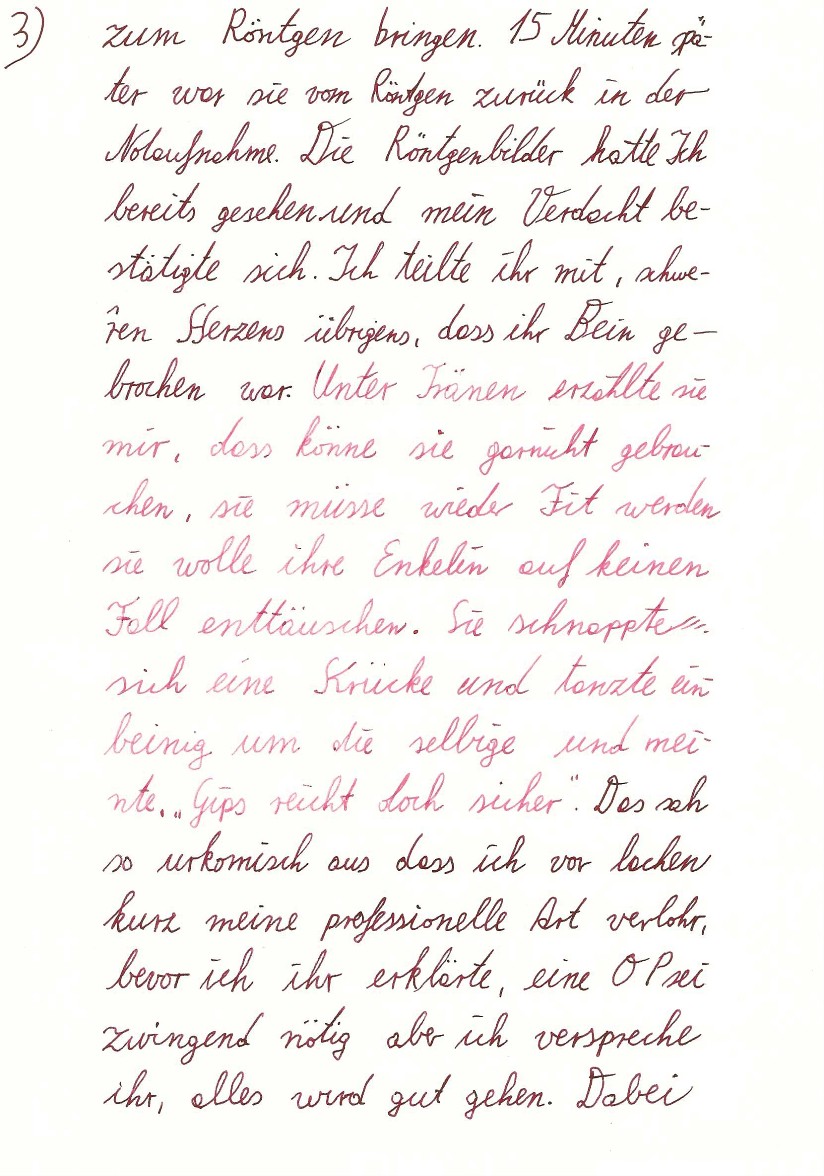 3) zum Röntgen bringen. 15 Minuten spä-
ter war sie vom Röntgen zurück in der
Notaufnahme. Die Röntgenbilder hatte Ich
bereits gesehen und mein Verdacht be-
stätigte sich. Ich teilte ihr mit, schwe-
ren Herzens übrigens, dass ihr Bein ge-
brochen war. Unter Tränen erzählte sie
mir, dass könne sie garnicht gebrau-
chen, sie müsse wieder Fit werden
sie wolle ihre Enkelin auf keinen
Fall enttäuschen. Sie schnappte
sich eine Krücke und tanzte ein
beinig um die selbige und mei-
nte. „Gips reicht doch sicher". Das sah
so urkomisch aus dass ich vor lachen
kurz meine professionelle Art verlohr,
bevor ich ihr erklärte, eine OP sei
zwingend nötig aber ich verspreche
ihr, alles wird gut gehen. Dabei